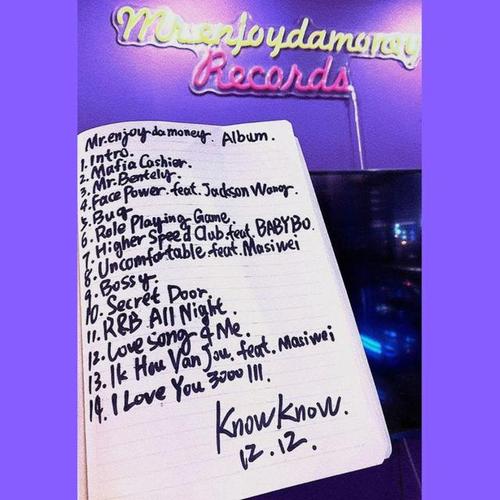 Mr.enjoydamoney
Records
Mr.enjoy da money. Album.
1. Intro.
2. Mafia Cashier.
3. Mr. Bentely.
4. Face Power. feat. Jackson Wang.
5. Bug
6. Role Playing Game.
7. Higher Speed Club. feat. BABYBO.
8. Uncomfortable. feat. Masiwei
9. Bossy.
10. Secret Door.
11. R&B All Night.
12. Love Song 4 Me.
13. Ik Hou Van Jou. feat. Masiwei
14. I Love You 3000 III.
KnowKnow.
12.12.